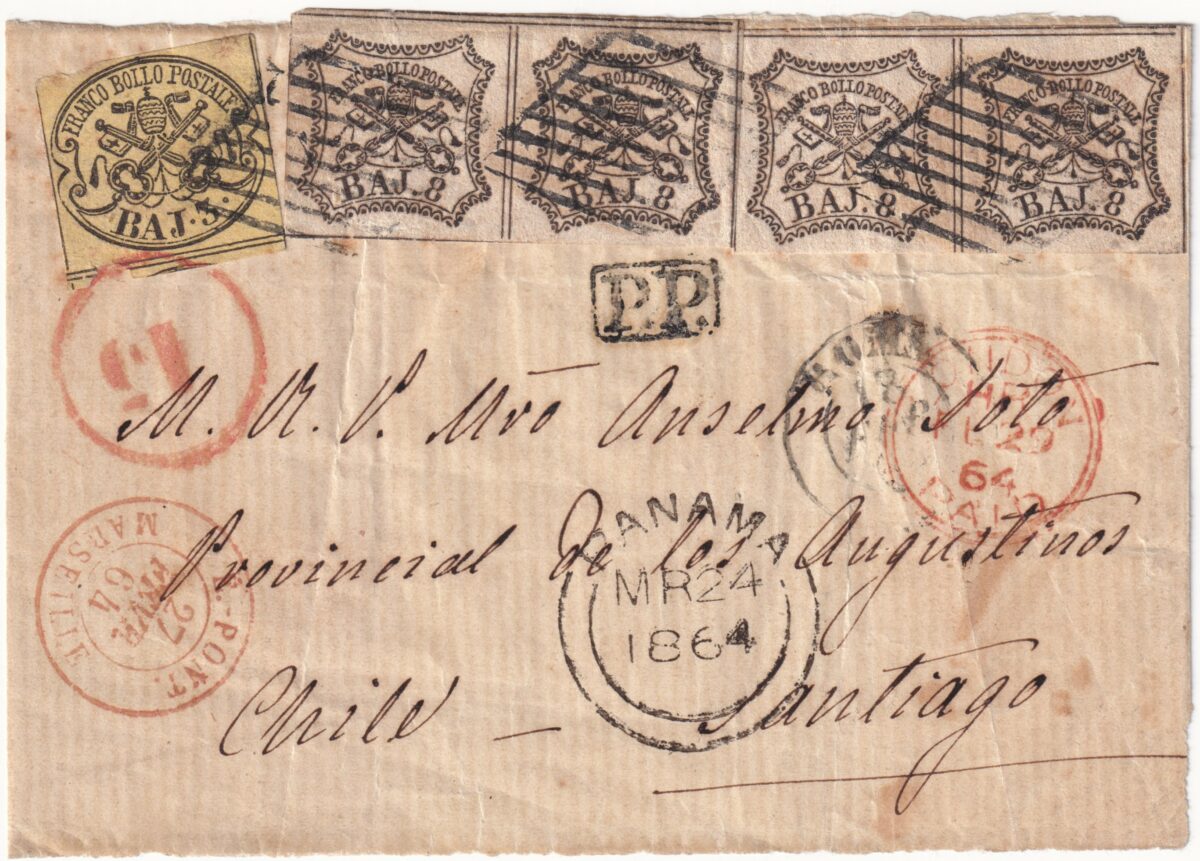 FRANCO BOLLO POSTALE
BAJ. 3.
FRANCO BOLLO POSTALE
BAJ. 8
FRANCO BOLLO POSTALE
BAJ. 8
FRANCO BOLLO POSTALE
BAJ. 8
FRANCO BOLLO POSTALE
BAJ. 8
P.P.
ROMA
LONDON
64
PAID
M. R. P. Mro Anselmo Soto
PANAMA
MR 24
1864
Provincial de los Augustinos
PONT.
27
FEVR
64
MARSEILLE
Chile – Santiago